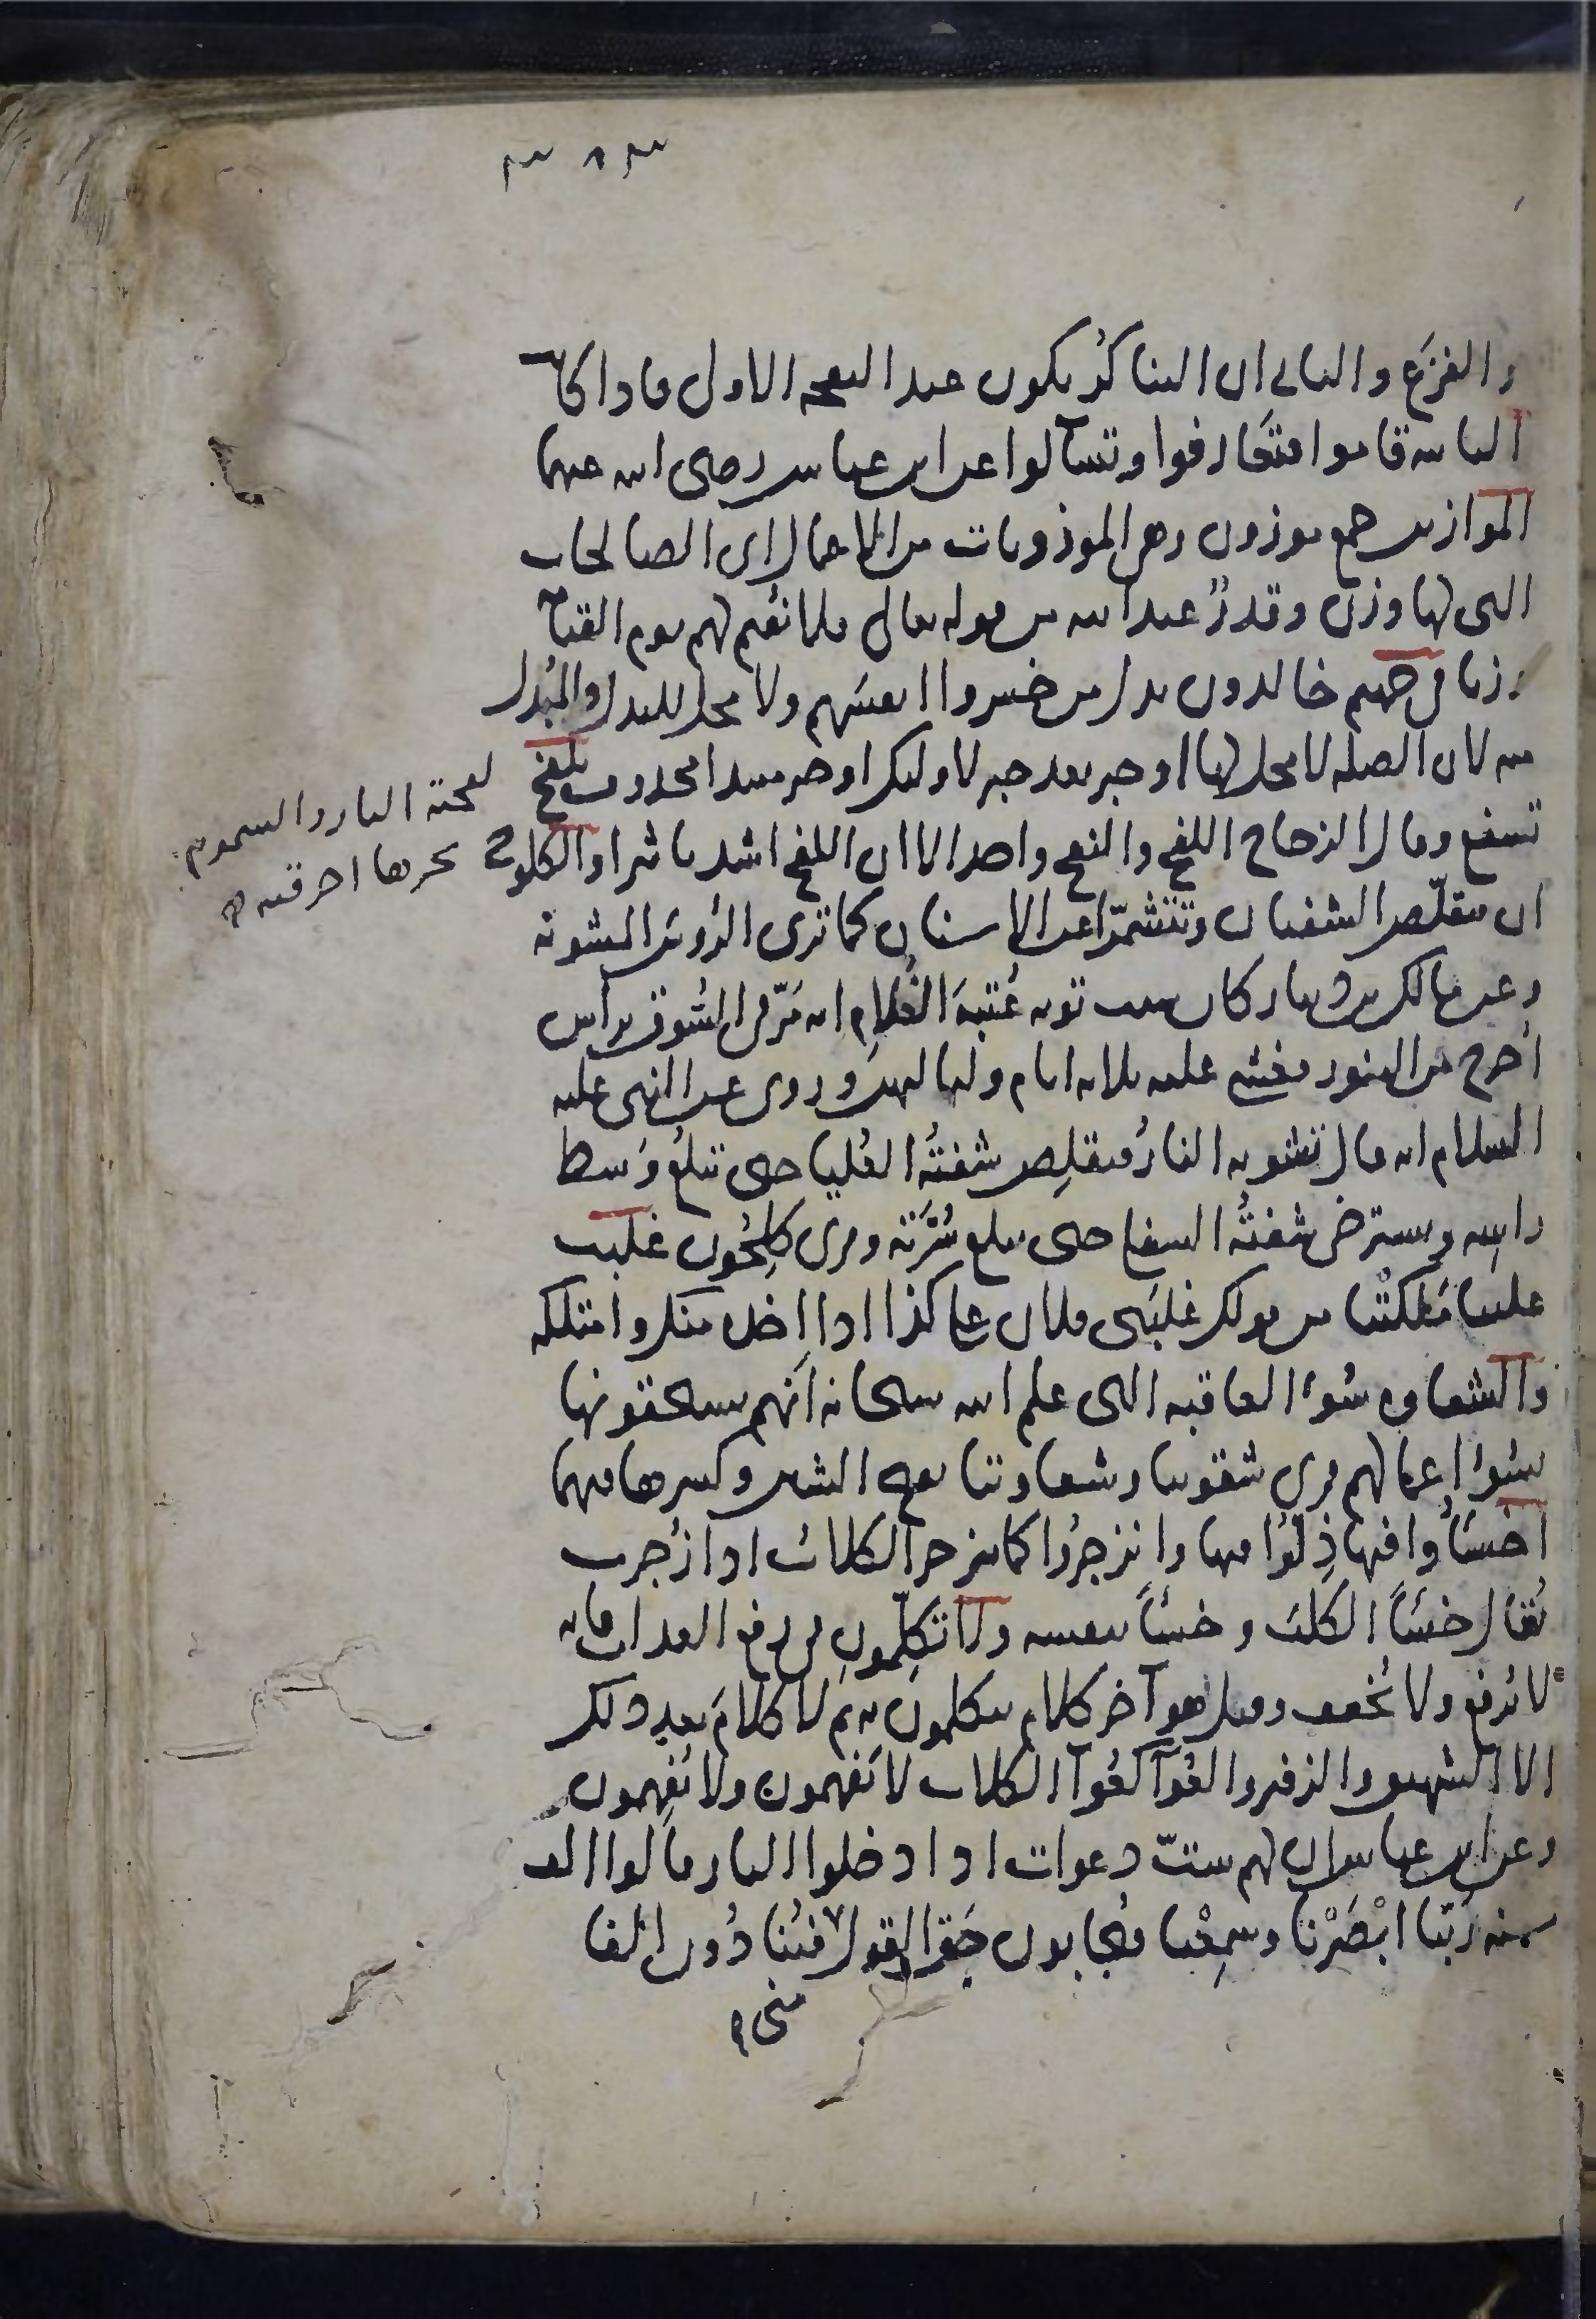 ٣٨٣
والفزع والثاني ان التناكر يكون عند النفخة الاولى فاذا كانت
الثانية قاموا فتعارفوا وتسآلوا عن ابن عباس رضي الله عنهما
الموازين جمع موزون وهي الموزونات من الاعمال اي الصالحات
التي لها وزن وقدرٌ عند الله من قوله تعالى فلا نقيم لهم يوم القيامة
وزنا في جهنم خالدون بدل من خسروا انفسهم ولا محل للبدل والمبدل
منه لان الصلة لا محل لها او خبر بعد خبر لاولئك او خبر مبتدا محذوف تلفح
تسفع وقال الزجاج اللفح والنفح واحد الا ان اللفح اشد تاثيرا والكلوح
لفحته النار والسموم
بحرها احرقته
ان تتقلّص الشفتان وتتشمّرا عن الاسنان كما ترى الرؤس المشوية
وعن مالك بن دينار كان سبب توبة عُتبةَ الغُلامِ انه مَرّ في السُوق براس
اُخرج من التنور فغشي عليه ثلاثة ايام ولياليهن وروي عن النبي عليه
السلام انه قال تشويه النارُ فتقلِص شفتُه العُليا حتى تبلغُ وَسط
راسِه وتسترخي شفتُه السفلى حتى تبلغ سُرّته وقرئ كلِحُون غلبت
علينا مَلكتْنا من قولك غلبَني فلان على كذا اذا اخذه منك وامتلكه
والشقاوة سُوءُ العاقبة التي علم الله سبحانه انهم يستحقونها
بسُوء اعمالهم قرئ شقوتنا وشقاوتنا بفتح الشين وكسرها فيهما
اخسَأُوا فيها ذِلّوا فيها وانزجرُوا كما ينزجر الكلاب اذا زُجرت
يُقال خسَأَ الكلبَ وخسَأَ بنفسه ولا تكلّمونِ في رفع العذاب فانه
لا يُرفع ولا يُخفف وقيل هو آخر كلام يتكلمون به ثم لا كلامَ بعد ذلك
الا الشهيق والزفير والعُوَآ كعُوَآ الكلاب لا يَفهمون ولا يُفهِمون
وعن ابن عباس ان لهم ستّ دعوات اذا دخلوا النار قالوا الف
سنه رَبّنا ابْصَرْنا وسمِعْنا فيُجابون حَقّ القول منّى فيُنادُون الفا